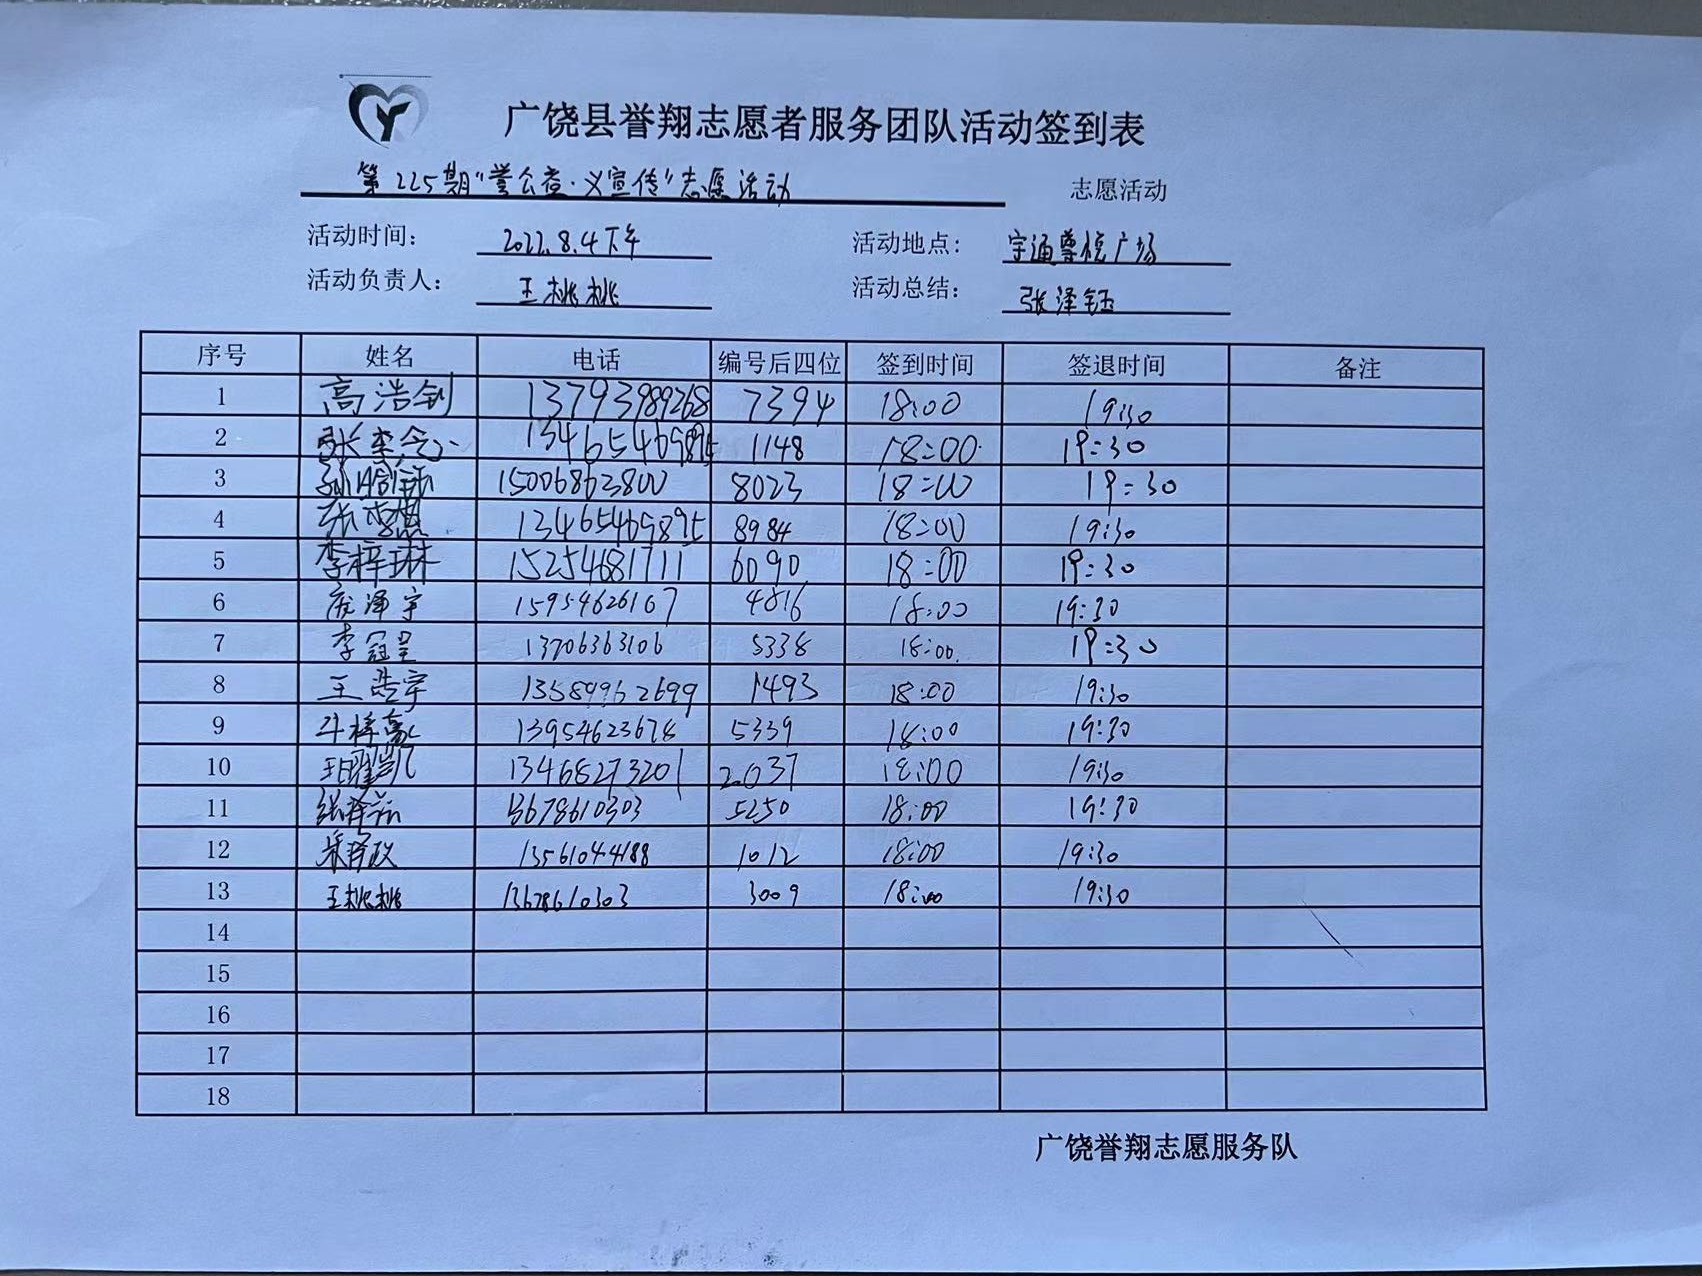 广饶县誉翔志愿者服务团队活动签到表
第225期"誉公益·义宣传"志愿活动 志愿活动
活动时间： 2022.8.4下午 活动地点： 宇通尊悦广场
活动负责人： 王桃桃 活动总结： 张泽钰
序号 姓名 电话 编号后四位 签到时间 签退时间 备注
1 高浩钊 13793989268 7394 18:00 19:30
2 张李念 13465469895 1148 18:00 19:30
3 15006863800 8023 18:00 19:30
4 13465469895 8984 18:00 19:30
5 李梓琳 15254681711 6090 18:00 19:30
6 庞泽宇 15954626167 4816 18:00 19:30
7 李冠呈 13706363106 5338 18:00 19:30
8 王浩宇 13589962699 1493 18:00 19:30
9 13954623678 5339 18:00 19:30
10 王曜凯 13468273201 2037 18:00 19:30
11 13678610303 5250 18:00 19:30
12 13561044188 1012 18:00 19:30
13 王桃桃 13678610303 3009 18:00 19:30
14
15
16
17
18
广饶誉翔志愿服务队